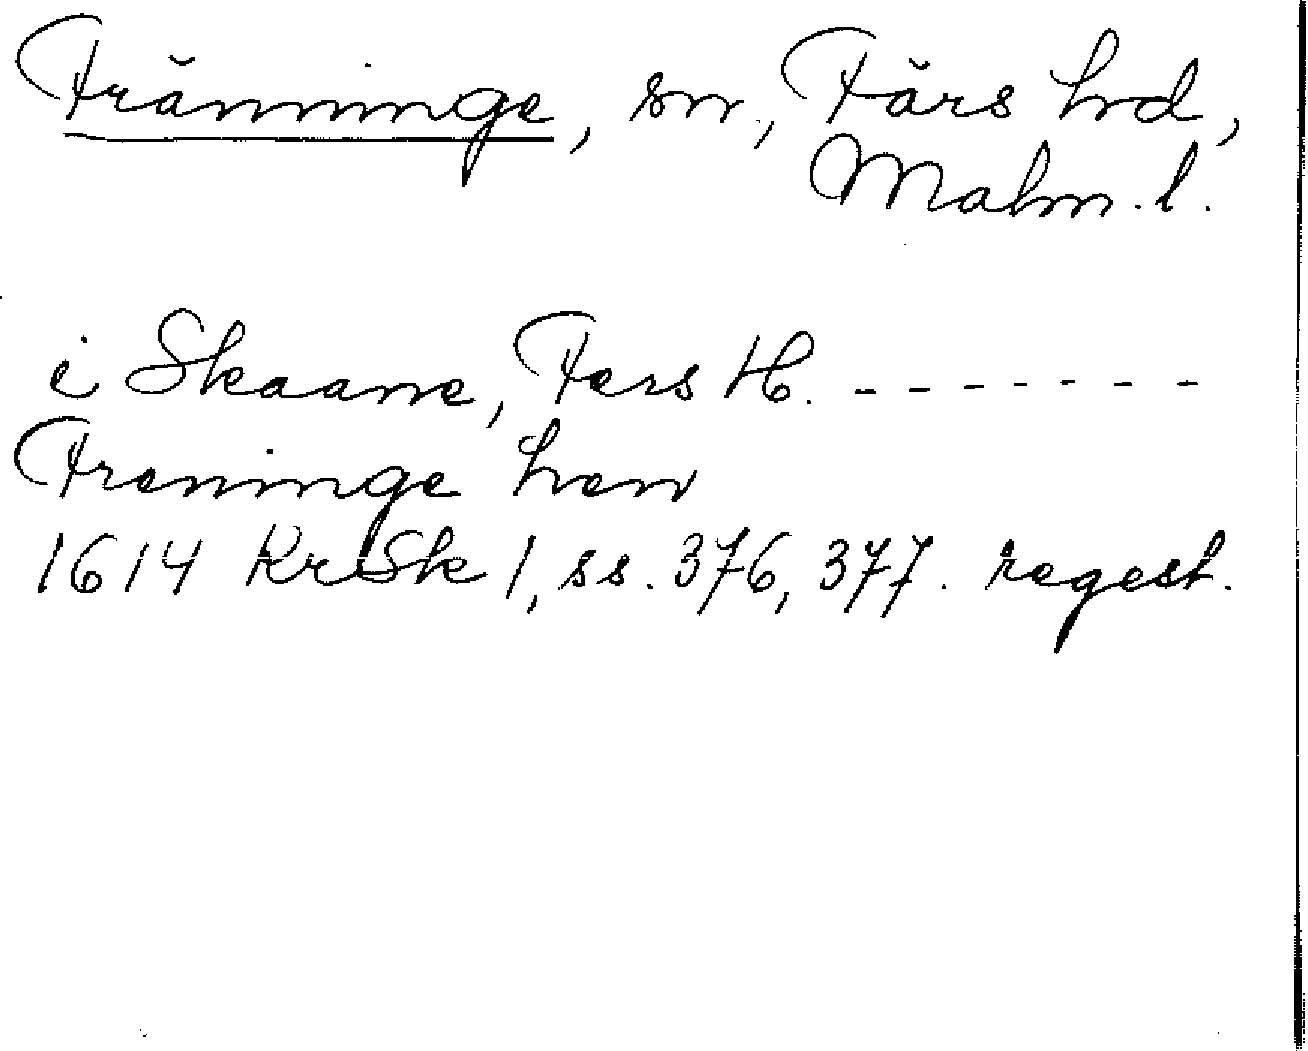 Fränninge, sn., Färs hrd,
Malm. l.
i Skaane, Fers H. - - - - - - -
Freninge hen
1614 KrSk 1, ss. 376, 377. regest.